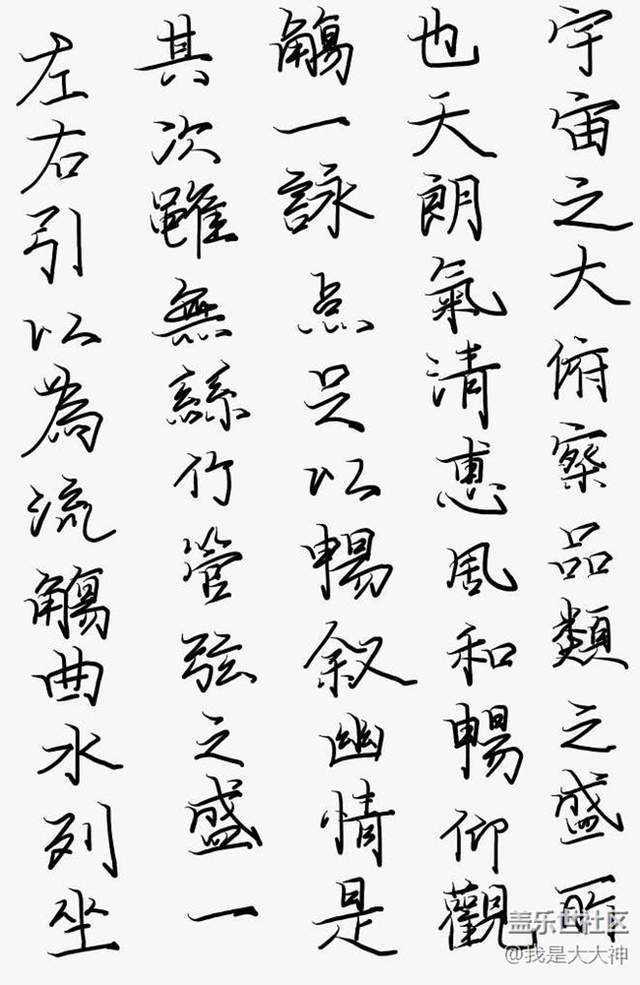 左右引以為流觴曲水列坐
其次雖無絲竹管弦之盛一
觴一詠亦足以暢叙幽情是
也天朗氣清惠風和暢仰觀
宇宙之大俯察品類之盛所
盖乐世社区
@我是大大神